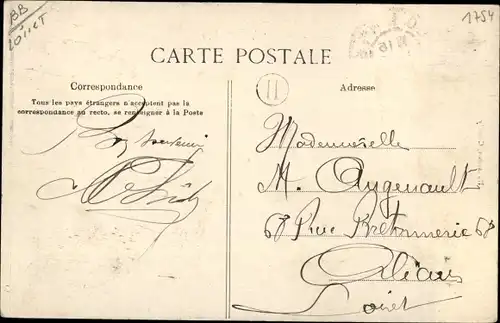 BB
LOIRET
1754
CARTE POSTALE
Correspondance
Tous les pays étrangers n'acceptent pas la
correspondance au recto, se renseigner à la Poste
H
Adresse
Bon souvenir
Mademoiselle
M. Augenault
68 Rue Bretonnerie 68
Orléans
Loiret